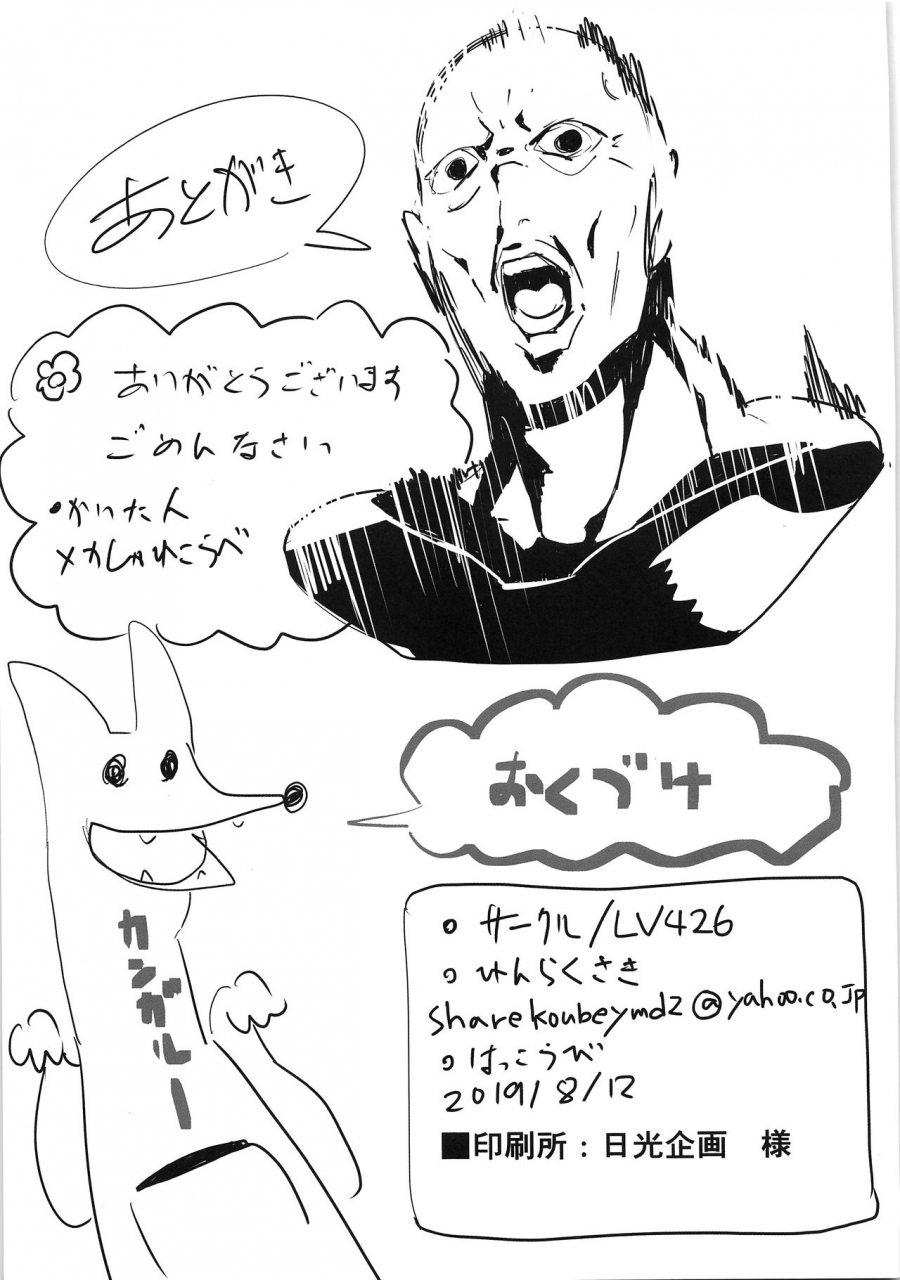 あとがき
ありがとうございます
ごめんなさいっ
・かいた人
メカしゃれこうべ
おくづけ
カンガルー
サークル/LV426
れんらくさき
sharekoubeymd2@yahoo.co.jp
はっこうび
2019/8/12
■印刷所:日光企画 様